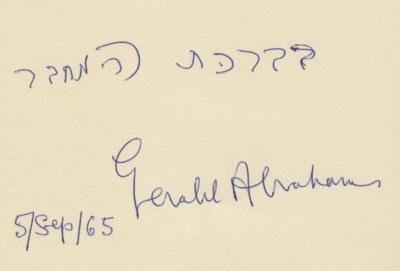 בברכת המחבר
Gerald Abrahams
5/Sep/65